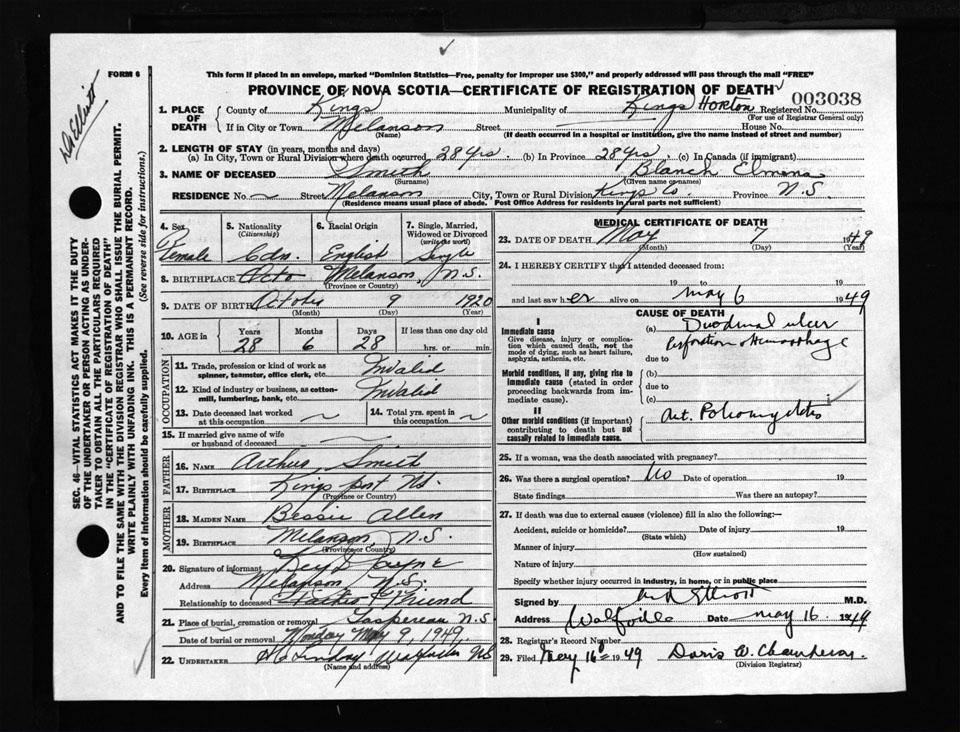 FORM 6
Dr Elliott
This form if placed in an envelope, marked "Dominion Statistics—Free, penalty for improper use $300," and properly addressed will pass through the mail "FREE"
PROVINCE OF NOVA SCOTIA—CERTIFICATE OF REGISTRATION OF DEATH
003038
1. PLACE OF DEATH
County of Kings Municipality of Kings Horton Registered No.
(For use of Registrar General only)
If in City or Town Melanson Street House No.
(Name) (If death occurred in a hospital or institution, give the name instead of street and number)
2. LENGTH OF STAY (in years, months and days)
(a) In City, Town or Rural Division where death occurred 28 yrs. (b) In Province 28 yrs. (c) In Canada (if immigrant)
3. NAME OF DECEASED Smith Blanch
(Surname) (Given name or names)
RESIDENCE No. Street Melanson City, Town or Rural Division Kings Co. Province N.S
(Residence means usual place of abode. Post Office Address for residents in rural parts not sufficient)
4. Sex 5. Nationality (Citizenship) 6. Racial Origin 7. Single, Married, Widowed or Divorced (write the word)
Female Cdn. English Single
8. BIRTHPLACE Melanson, N.S.
(Province or Country)
9. DATE OF BIRTH October 9 1920
(Month) (Day) (Year)
10. AGE in Years Months Days If less than one day old
28 6 28 hrs. or min.
OCCUPATION
11. Trade, profession or kind of work as spinner, teamster, office clerk, etc. Invalid
12. Kind of industry or business, as cotton-mill, lumbering, bank, etc. Invalid
13. Date deceased last worked at this occupation 14. Total yrs. spent in this occupation
15. If married give name of wife or husband of deceased
FATHER
16. NAME Arthur Smith
17. BIRTHPLACE Kingsport NS.
(Province or Country)
MOTHER
18. MAIDEN NAME Bessie Allen
19. BIRTHPLACE Melanson, N.S.
(Province or Country)
20. Signature of informant
Address Melanson N.S.
Relationship to deceased Friend
21. Place of burial, cremation or removal Gaspereau N.S
Date of burial or removal Monday May 9, 1949.
22. UNDERTAKER Lindsay NS
(Name and address)
MEDICAL CERTIFICATE OF DEATH
23. DATE OF DEATH May 7 1949
(Month) (Day) (Year)
24. I HEREBY CERTIFY that I attended deceased from:
19 to 19
and last saw her alive on May 6 1949
CAUSE OF DEATH
I
Immediate cause (a) Duodenal ulcer
Give disease, injury or complication which caused death, not the mode of dying, such as heart failure, asphyxia, asthenia, etc.
Perforation & Hemorrhage
due to
Morbid conditions, if any, giving rise to immediate cause (stated in order proceeding backwards from immediate cause).
(b)
due to
(c)
II
Other morbid conditions (if important) contributing to death but not causally related to immediate cause.
Ant. Poliomyelitis
25. If a woman, was the death associated with pregnancy?
26. Was there a surgical operation? No Date of operation 19
State findings Was there an autopsy?
27. If death was due to external causes (violence) fill in also the following:—
Accident, suicide or homicide? Date of injury 19
(State which)
Manner of injury
(How sustained)
Nature of injury
Specify whether injury occurred in industry, in home, or in public place
Signed by Elliott M.D.
Address Wolfville Date May 16 1949
28. Registrar's Record Number
29. Filed May 16 1949 Doris W.
(Division Registrar)
SEC. 46—VITAL STATISTICS ACT MAKES IT THE DUTY
OF THE UNDERTAKER OR PERSON ACTING AS UNDERTAKER TO OBTAIN ALL THE PARTICULARS REQUIRED
IN THE "CERTIFICATE OF REGISTRATION OF DEATH"
AND TO FILE THE SAME WITH THE DIVISION REGISTRAR WHO SHALL ISSUE THE BURIAL PERMIT.
WRITE PLAINLY WITH UNFADING INK. THIS IS A PERMANENT RECORD.
Every item of information should be carefully supplied. (See reverse side for instructions.)